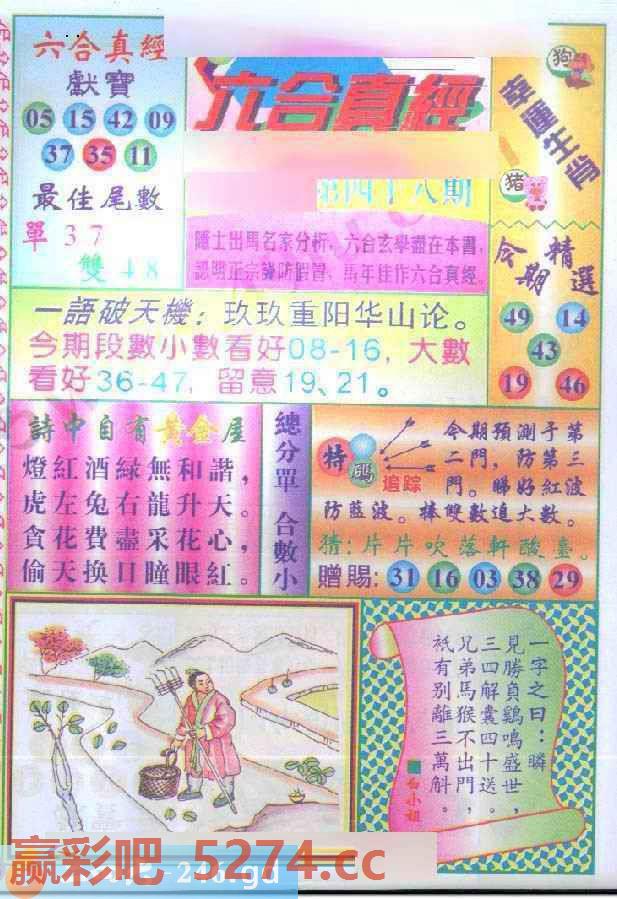 六合真經
獻寶
05 15 42 09
37 35 11
最佳尾數
單 3 7
雙 4 8
六合真經
第四十八期
隱士出馬名家分析，六合玄學盡在本書，
認明正宗謹防假冒，馬年佳作六合真經。
狗
幸運生肖
猪
今期精選
49 14
43
19 46
一語破天機：玖玖重阳华山论。
今期段數小數看好08-16，大數
看好36-47，留意19、21。
詩中自有黃金屋
燈紅酒綠無和諧，
虎左兔右龍升天。
貪花費盡采花心，
偷天换日瞳眼紅。
總分單 合數小
特碼
追踪
今期預測于第
二門，防第三
門。睇好紅波
防藍波。棒雙數追大數。
猜：片片吹落軒酸臺。
贈賜：31 16 03 38 29
一字之曰：瞬
見勝負鷄鳴盛世，
三四解囊四十送。
兄弟馬猴不出門，
祇有别離三萬斛。
白小姐
赢彩吧 5274.cc